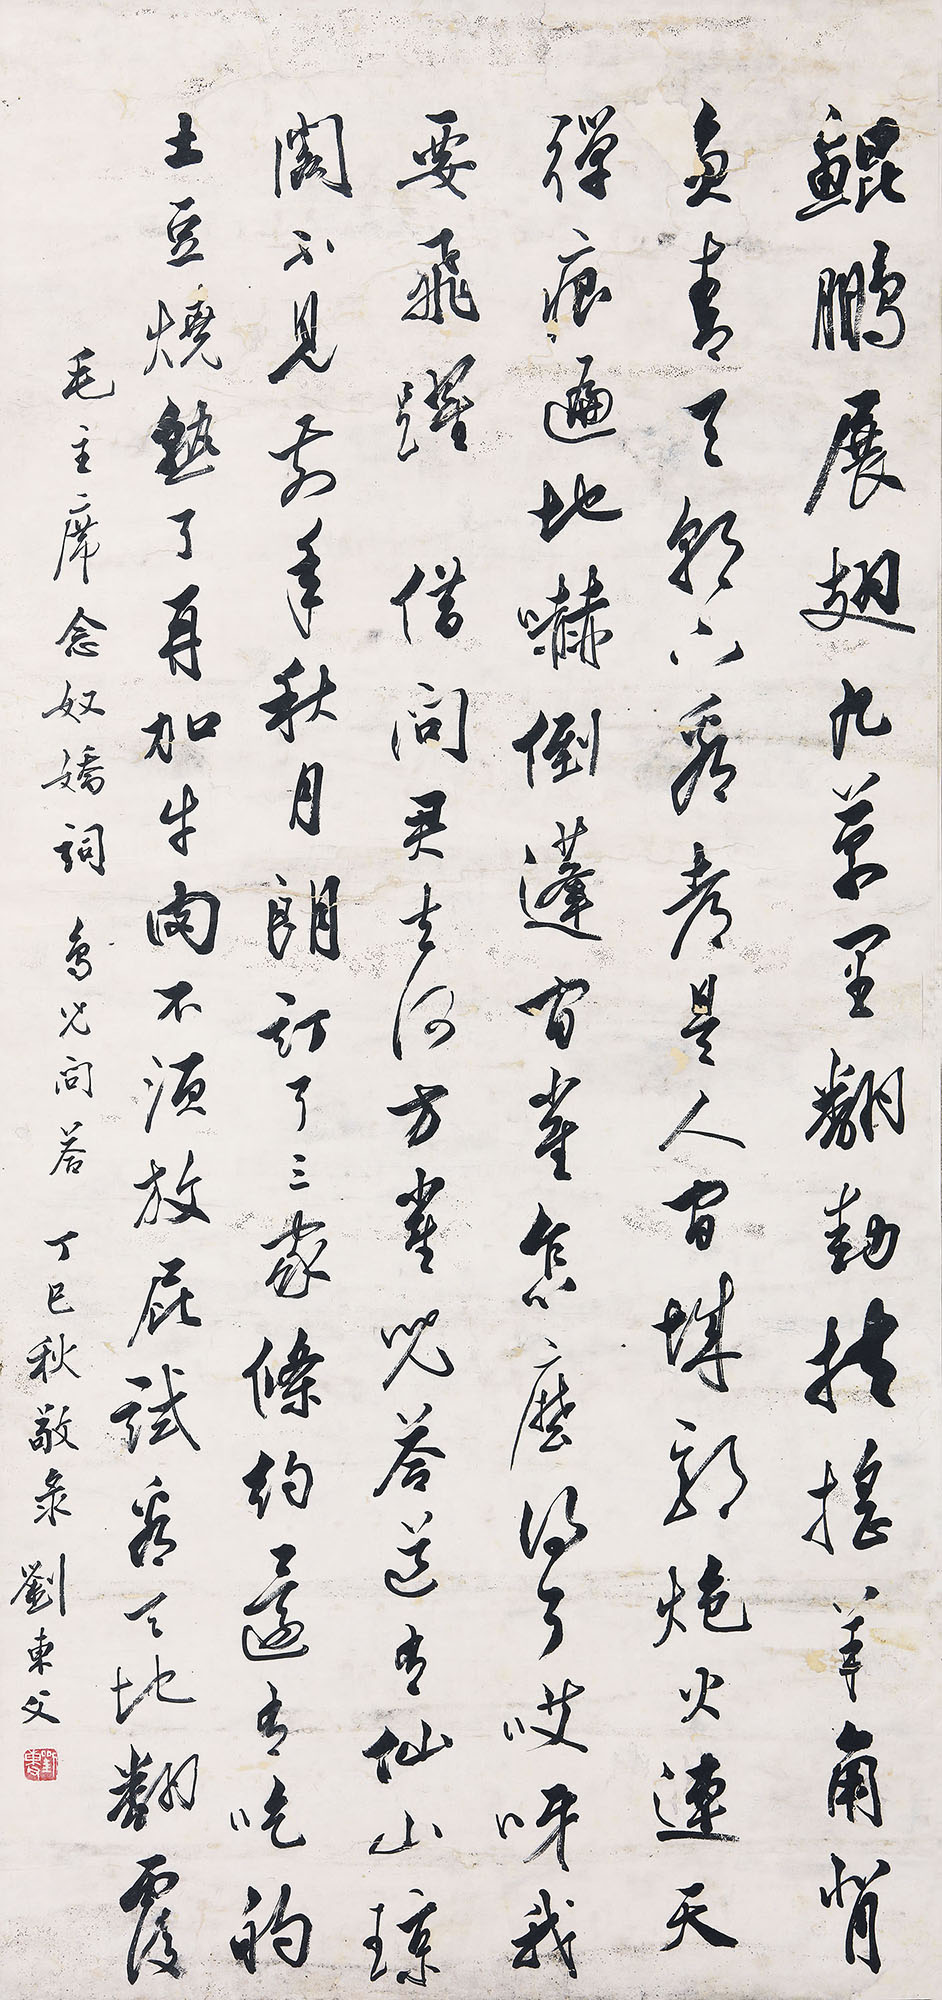 鯤鵬展翅九萬里翻動扶搖羊角背
負青天朝下看都是人間城郭炮火連天
彈痕遍地嚇倒蓬間雀怎麼得了哎呀我
要飛躍 借問君去何方雀兒答道有仙山瓊
閣不見前年秋月朗訂了三家條約還有吃的
土豆燒熟了再加牛肉不須放屁試看天地翻覆
毛主席念奴嬌詞 鳥兒問答 丁巳秋敬录 劉東父